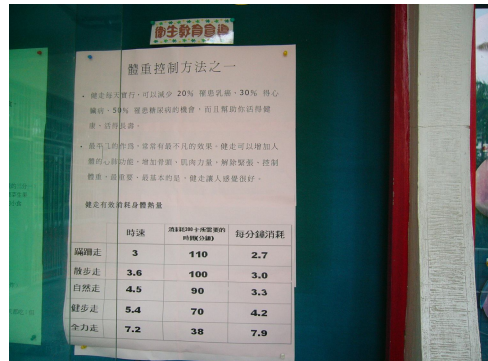 衛生教育宣導
體重控制方法之一
• 健走每天實行，可以減少 20% 罹患乳癌、30% 得心
臟病、50% 罹患糖尿病的機會，而且幫助你活得健
康、活得長壽。
• 最平凡的作為，常常有最不凡的效果。健走可以增加人
體的心肺功能、增加骨骼、肌肉力量，解除緊張，控制
體重，最重要、最基本的是，健走讓人感覺很好。
健走有效消耗身體熱量
時速 消耗300卡所需要的時間(分鐘) 每分鐘消耗
蹣跚走 3 110 2.7
散步走 3.6 100 3.0
自然走 4.5 90 3.3
健步走 5.4 70 4.2
全力走 7.2 38 7.9